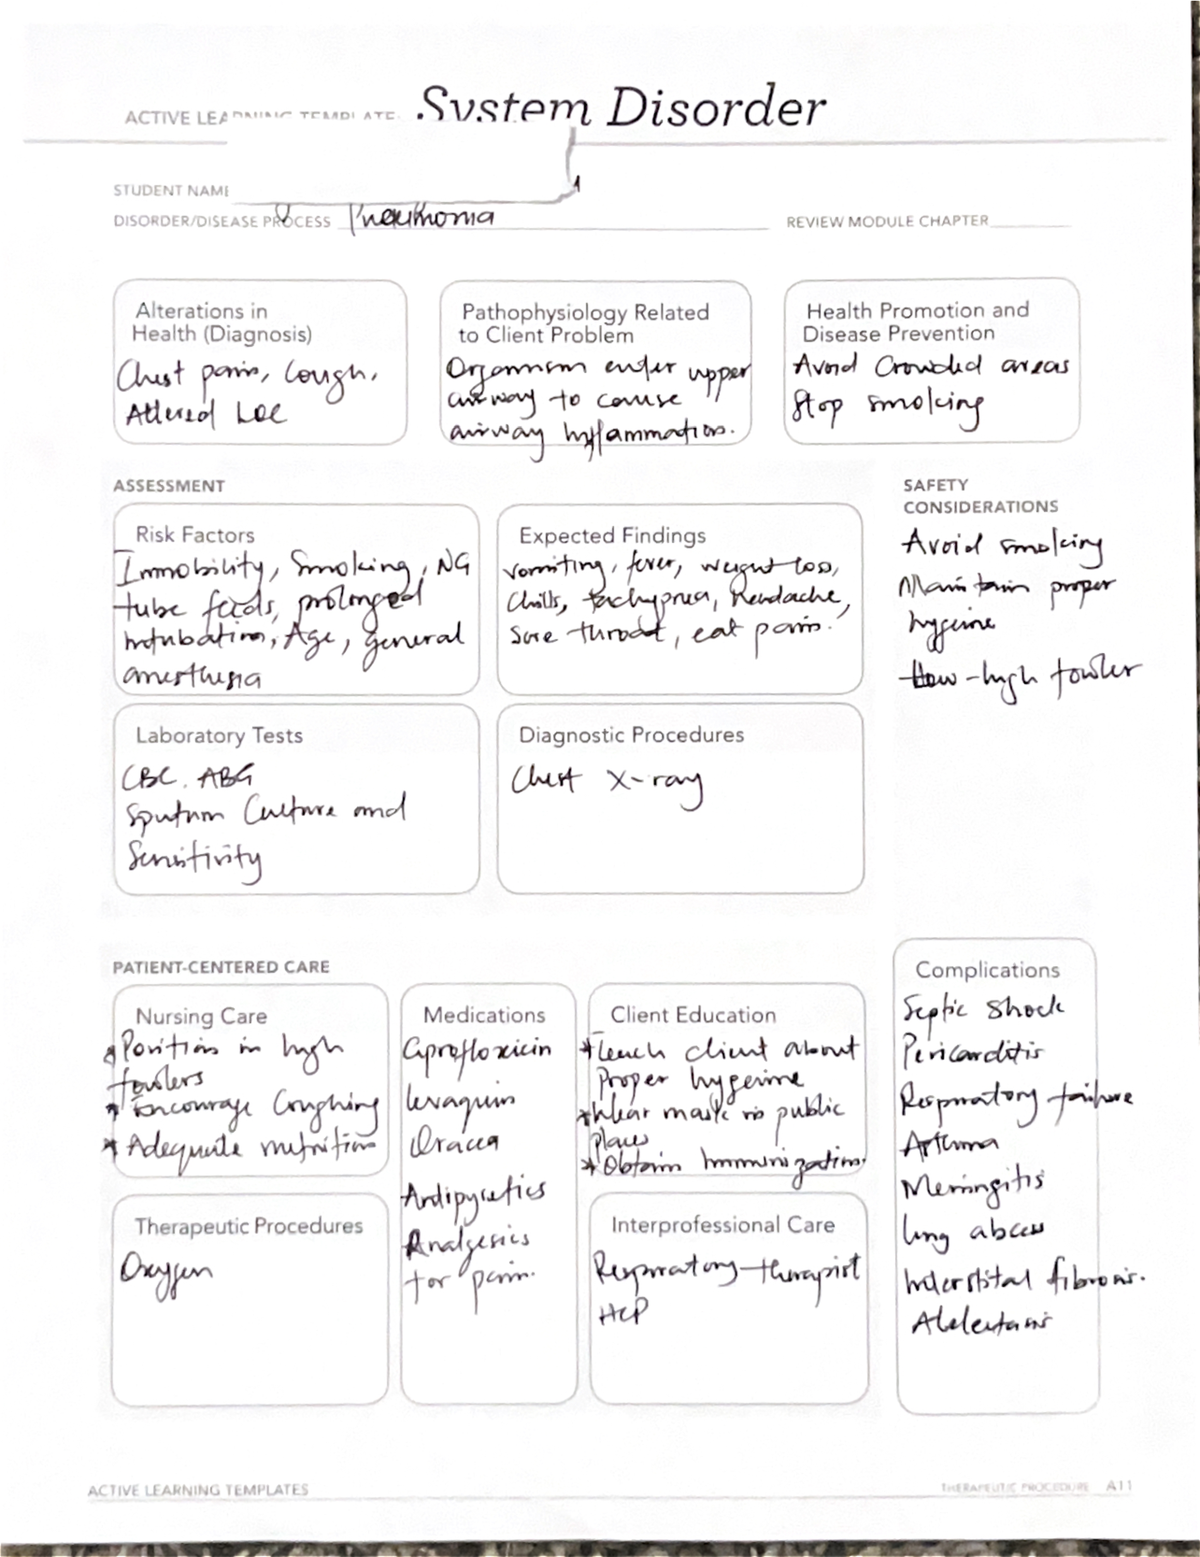 ACTIVE LEARNING TEMPLATE: System Disorder
STUDENT NAME
DISORDER/DISEASE PROCESS Pneumonia REVIEW MODULE CHAPTER
Alterations in
Health (Diagnosis)
Chest pain, Cough,
Altered LOC
Pathophysiology Related
to Client Problem
Organism enter upper
airway to cause
airway inflammation.
Health Promotion and
Disease Prevention
Avoid Crowded areas
Stop smoking
ASSESSMENT
SAFETY
CONSIDERATIONS
Risk Factors
Immobility, Smoking, NG
tube feeds, prolonged
intubation, Age, general
anesthesia
Expected Findings
vomiting, fever, weight loss,
Chills, tachypnea, headache,
Sore throat, eat pain.
Avoid smoking
Maintain proper
hygeine
-high fowler
Laboratory Tests
CBC. ABG
Sputum Culture and
Sensitivity
Diagnostic Procedures
Chest X-ray
PATIENT-CENTERED CARE
Nursing Care
* Position in high
fowlers
* Encourage Coughing
* Adequate nutrition
Medications
Ciprofloxicin
levaquin
Antipyretics
Analgesics
for pain.
Client Education
* Teach client about
Proper hygeine
* Wear mask in public
places
* Obtain Immunization.
Therapeutic Procedures
Oxygen
Interprofessional Care
Respiratory therapist
HCP
Complications
Septic Shock
Pericarditis
Respiratory failure
Asthma
Meningitis
lung abcess
Interstital fibrosis.
Atelectasis
ACTIVE LEARNING TEMPLATES
THERAPEUTIC PROCEDURE A11